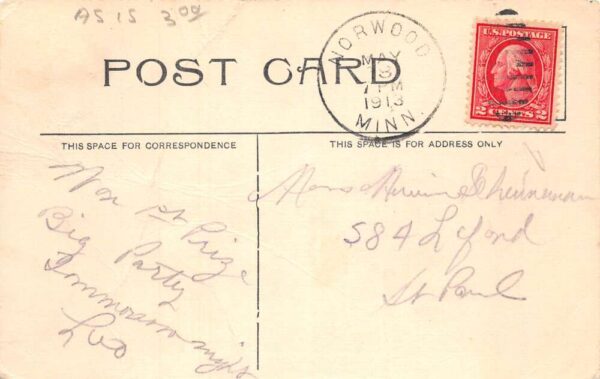 AS IS 3.00
POST CARD
NORWOOD
MAY
8
7 PM
1913
MINN.
U.S. POSTAGE
2 CENTS 2
THIS SPACE FOR CORRESPONDENCE
THIS SPACE IS FOR ADDRESS ONLY
Won 1st Prize
Big Party
Tommorow night
Leo
584 Lafond
St Paul